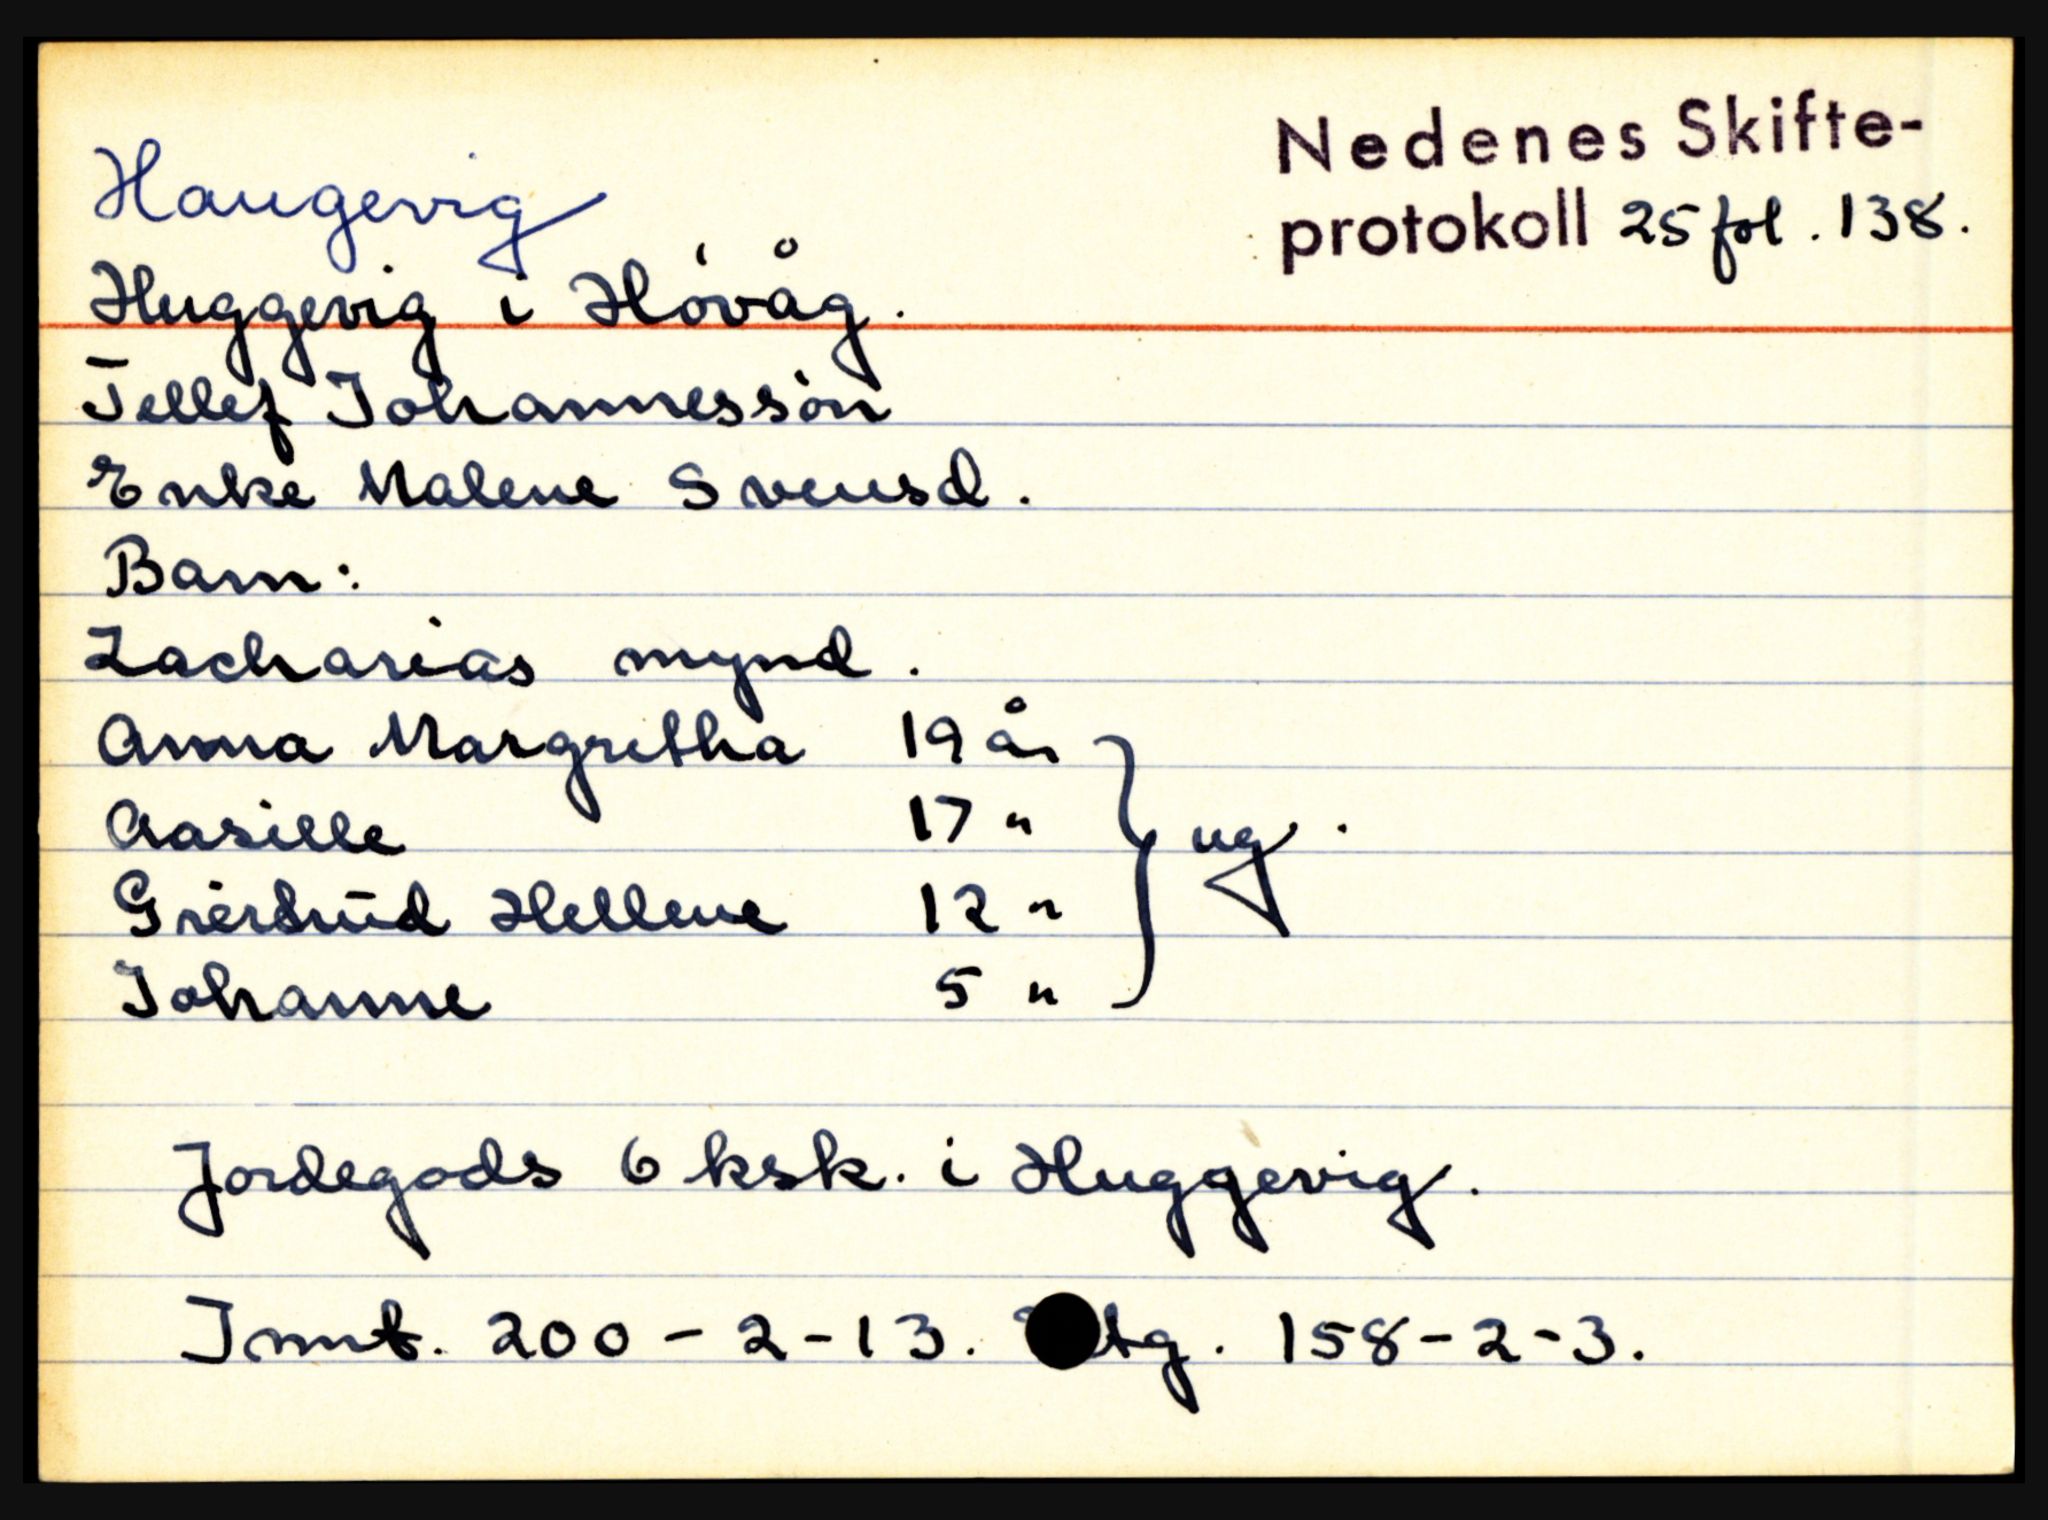 Nedenes Skifte-
protokoll 25 fol. 138.
Haugevig
Huggevig i Høvåg.
Tellef Johannessøn
Enke Malene Svensd.
Barn:
Zacharias mynd.
Anna Margretha 19 år
Aasille 17 "
Giertrud Hellene 12 " } ug.
Johanne 5 "
Jordegods 6 ksk. i Huggevig.
Innt. 200-2-13. tg. 158-2-3.